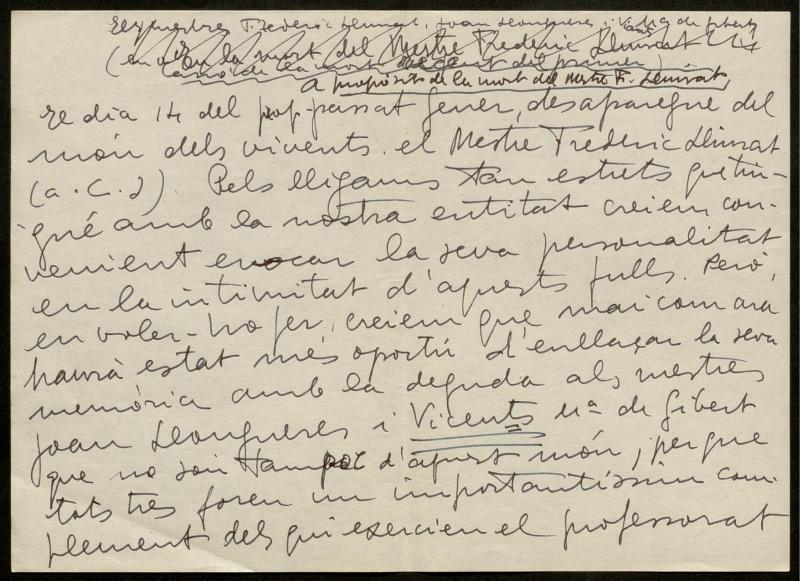 Els mestres Frederic Lliurat, Joan Llongueres i Vicents Mª de Gibert
(en oca En la mort del Mestre Frederic Lliurat
sió de la mort recent del primer)
A propòsit de la mort del Mestre F. Lliurat,
El dia 14 del prop-passat gener, desaparegue del
món dels vivents el Mestre Frederic Lliurat
(a. C. s). Pels lligams tan estrets que tin-
gué amb la nostra entitat creiem con-
venient evocar la seva personalitat
en la intimitat d'aquests fulls. Però,
en voler-ho fer, creiem que mai com ara
haurà estat més oportú d'enllaçar la seva
memòria amb la deguda als mestres
Joan Llongueres i Vicents Mª de Gibert
que no son tampoc d'aquest món, perque
tots tres foren un importantíssim com-
plement dels qui exercien el professorat